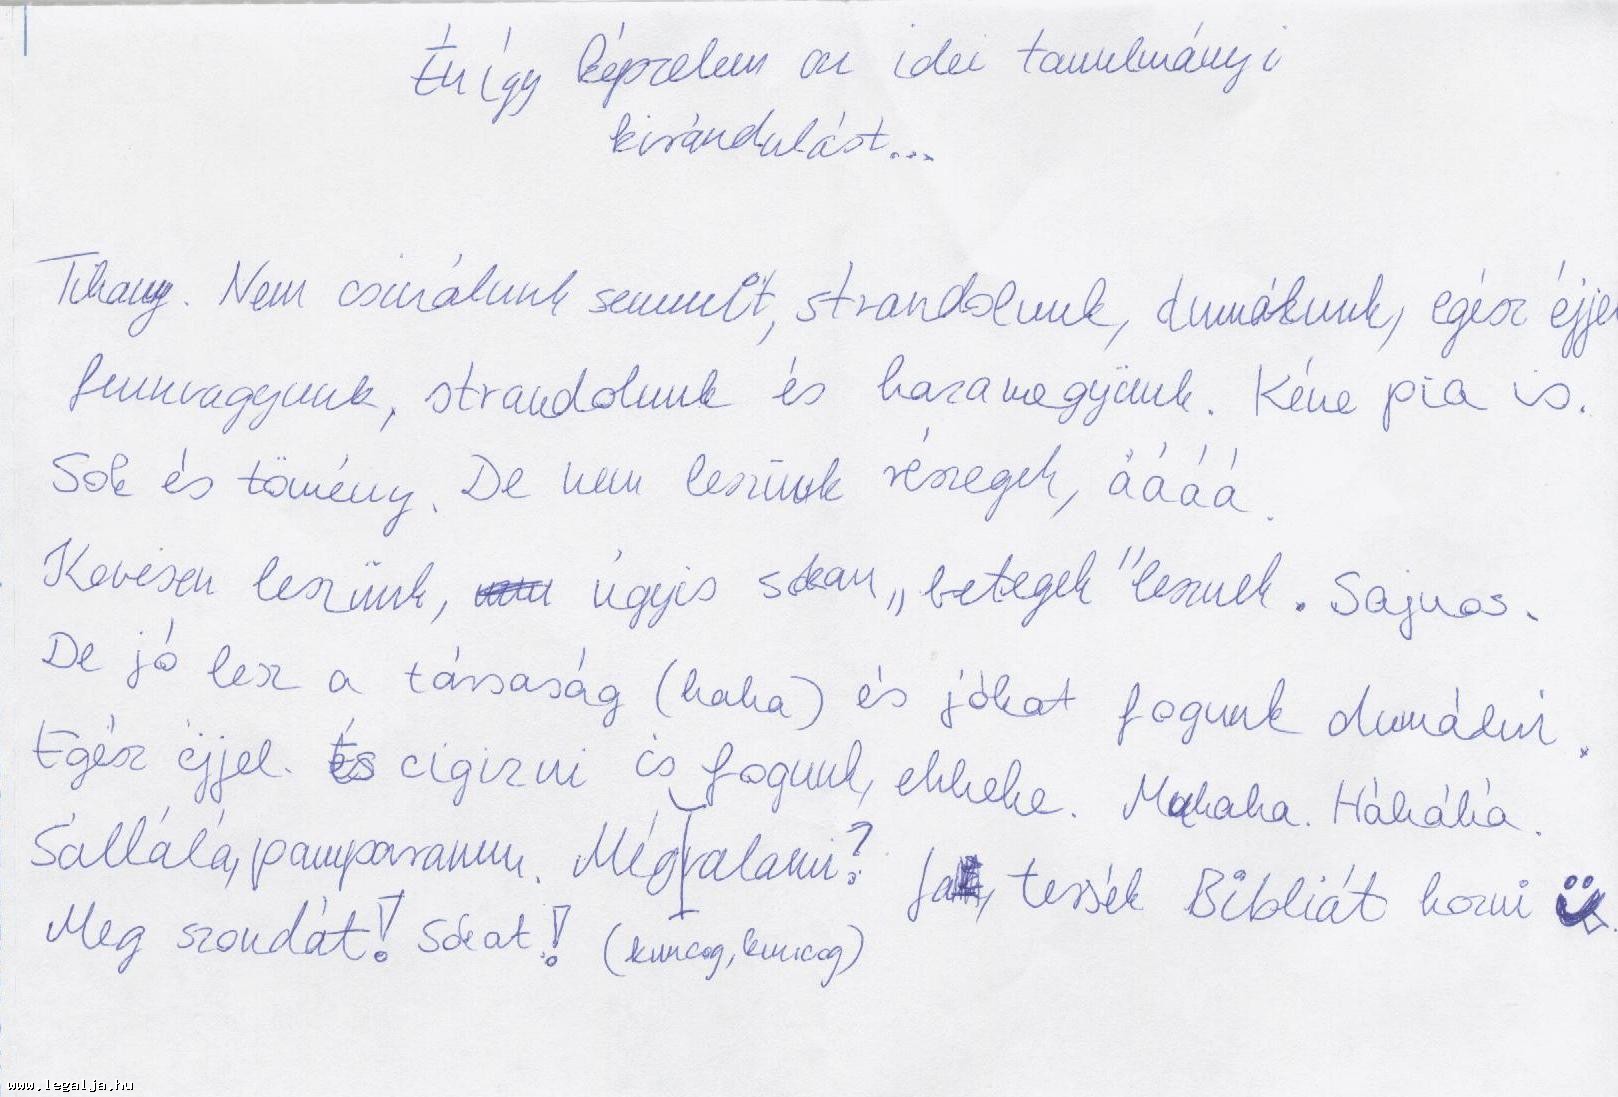 Én így képzelem az idei tanulmányi
kirándulást...
Tihany. Nem csinálunk semmit, strandolunk, dumálunk, egész éjjel
fennvagyunk, strandolunk és hazamegyünk. Kéne pia is.
Sok és tömény. De nem leszünk részegek, áááá.
Kevesen leszünk, úgyis sokan „betegek" lesznek. Sajnos.
De jó lesz a társaság (haha) és jókat fogunk dumálni.
Egész éjjel. És cigizni is fogunk, ehhehe. Muhaha. Háháhá.
Sallálá, pamparamm. Még valami? Ja, tessék Bibliát hozni
Meg szondát! Sokat! (kuncog, kuncog)
www.legalja.hu